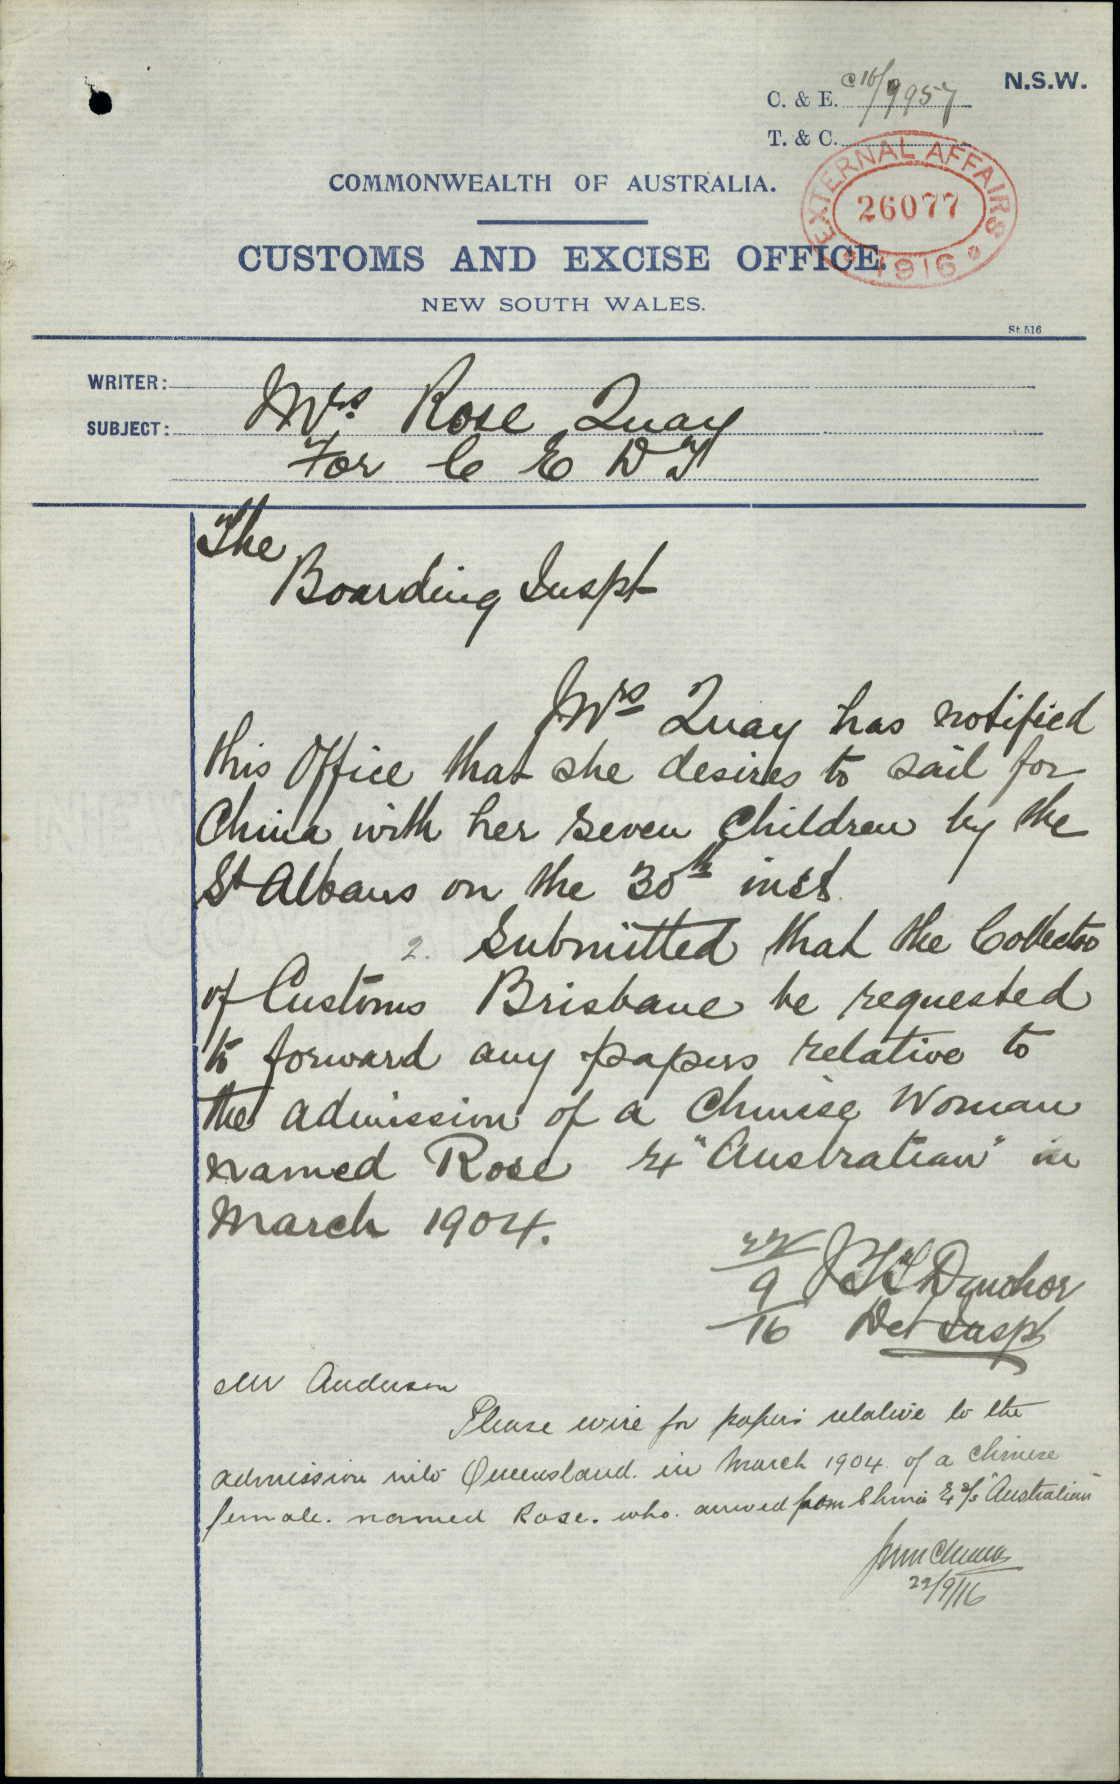 N.S.W.
C. & E. C16/9957
T. & C.
EXTERNAL AFFAIRS
26077
1916
COMMONWEALTH OF AUSTRALIA.
CUSTOMS AND EXCISE OFFICE,
NEW SOUTH WALES.
St. 516
WRITER:
SUBJECT: Mrs. Rose Quay
For C E D T
The
Boarding Inspt
Mrs Quay has notified
this Office that she desires to sail for
China with her seven children by the
St Albans on the 30th inst
2. Submitted that the Collector
of Customs Brisbane be requested
to forward any papers relative to
the admission of a Chinese Woman
named Rose ex "Australian" in
March 1904.
22/9/16
Det Inspt
Mr Anderson
Please wire for papers relative to the
admission into Queensland in March 1904 of a Chinese
female. named Rose. who. arrived from China Ex S/S "Australian"
22/9/16